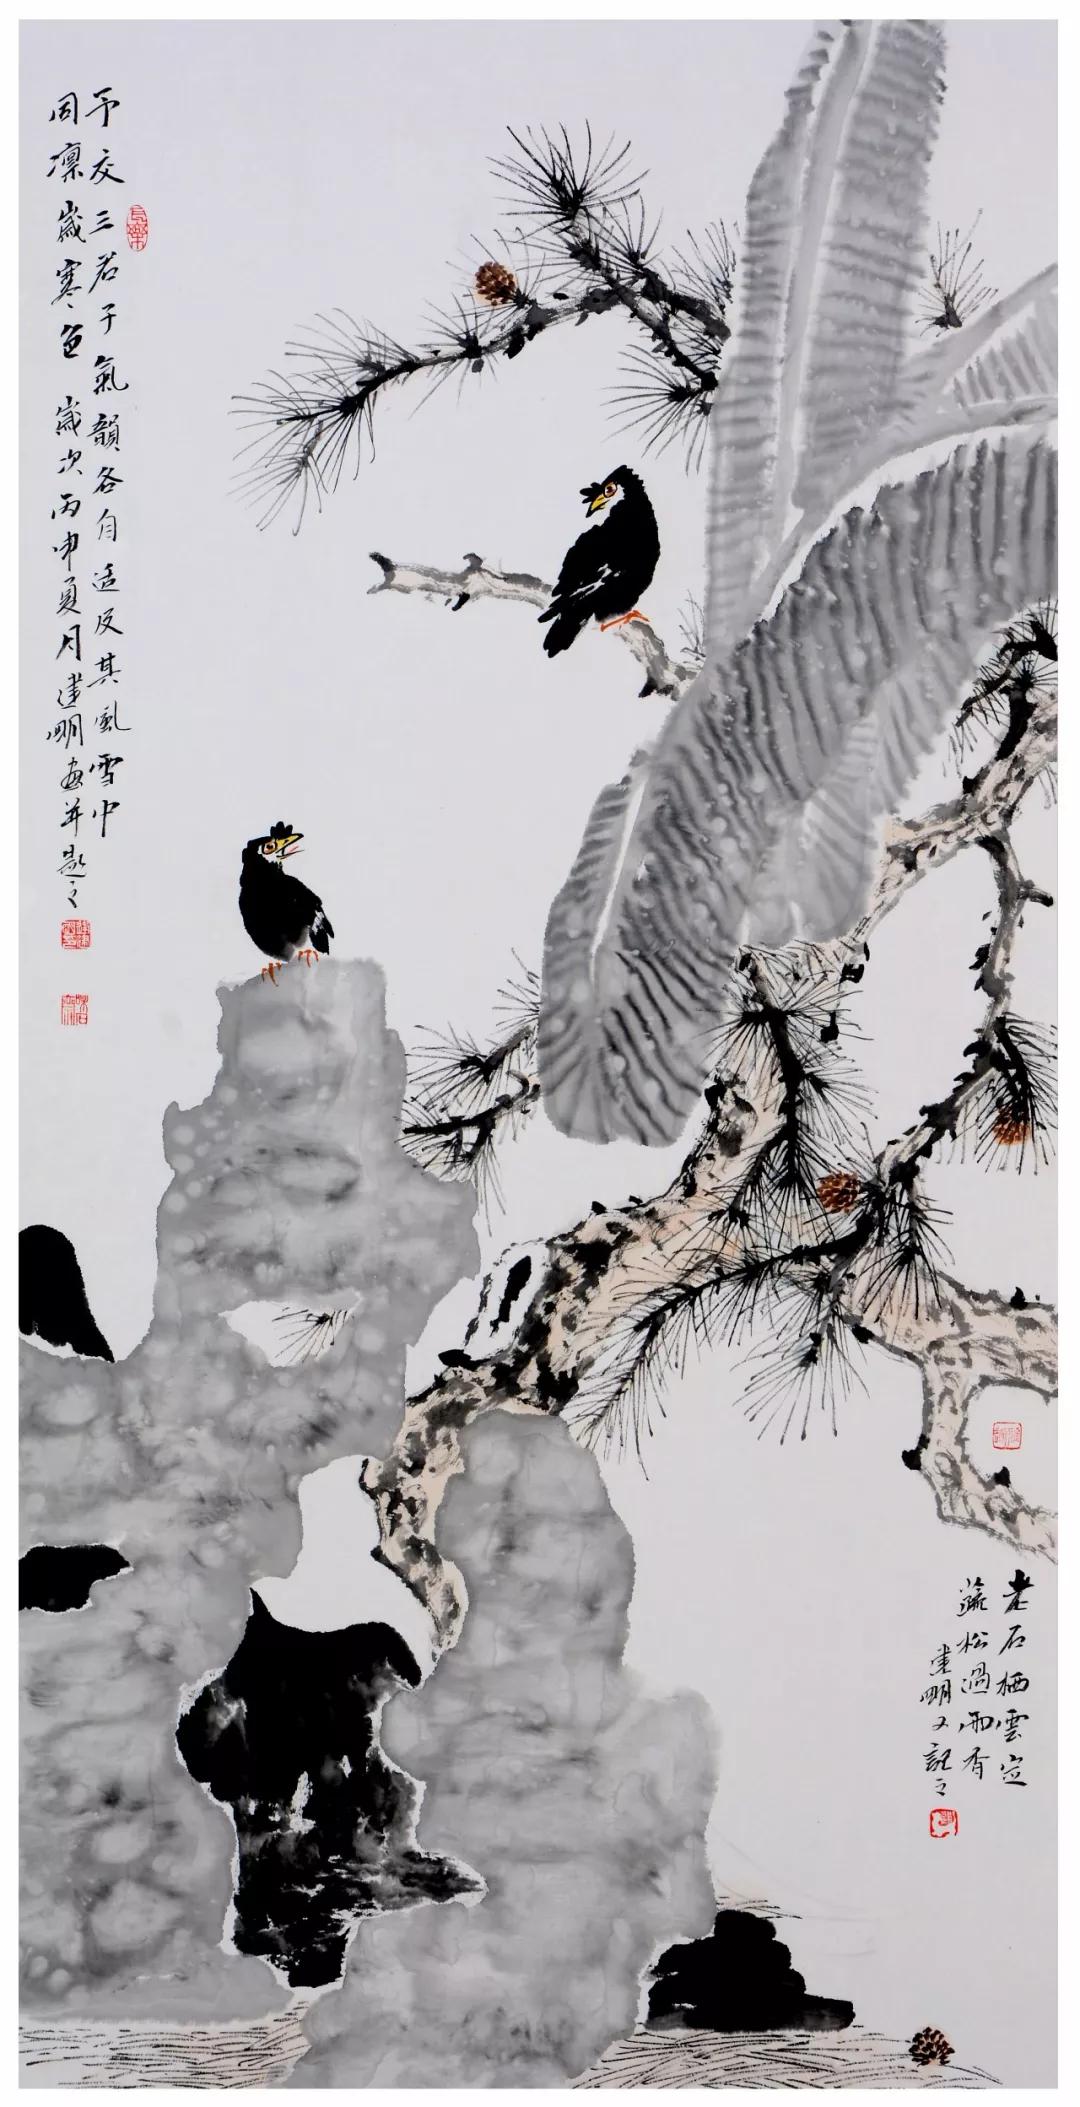 予交三君子氣韻各自适及其風雪中
同凛歲寒色 歲次丙申夏月建明画并题之
長樂
老石栖雲定
疏松過雨香
建明又記之